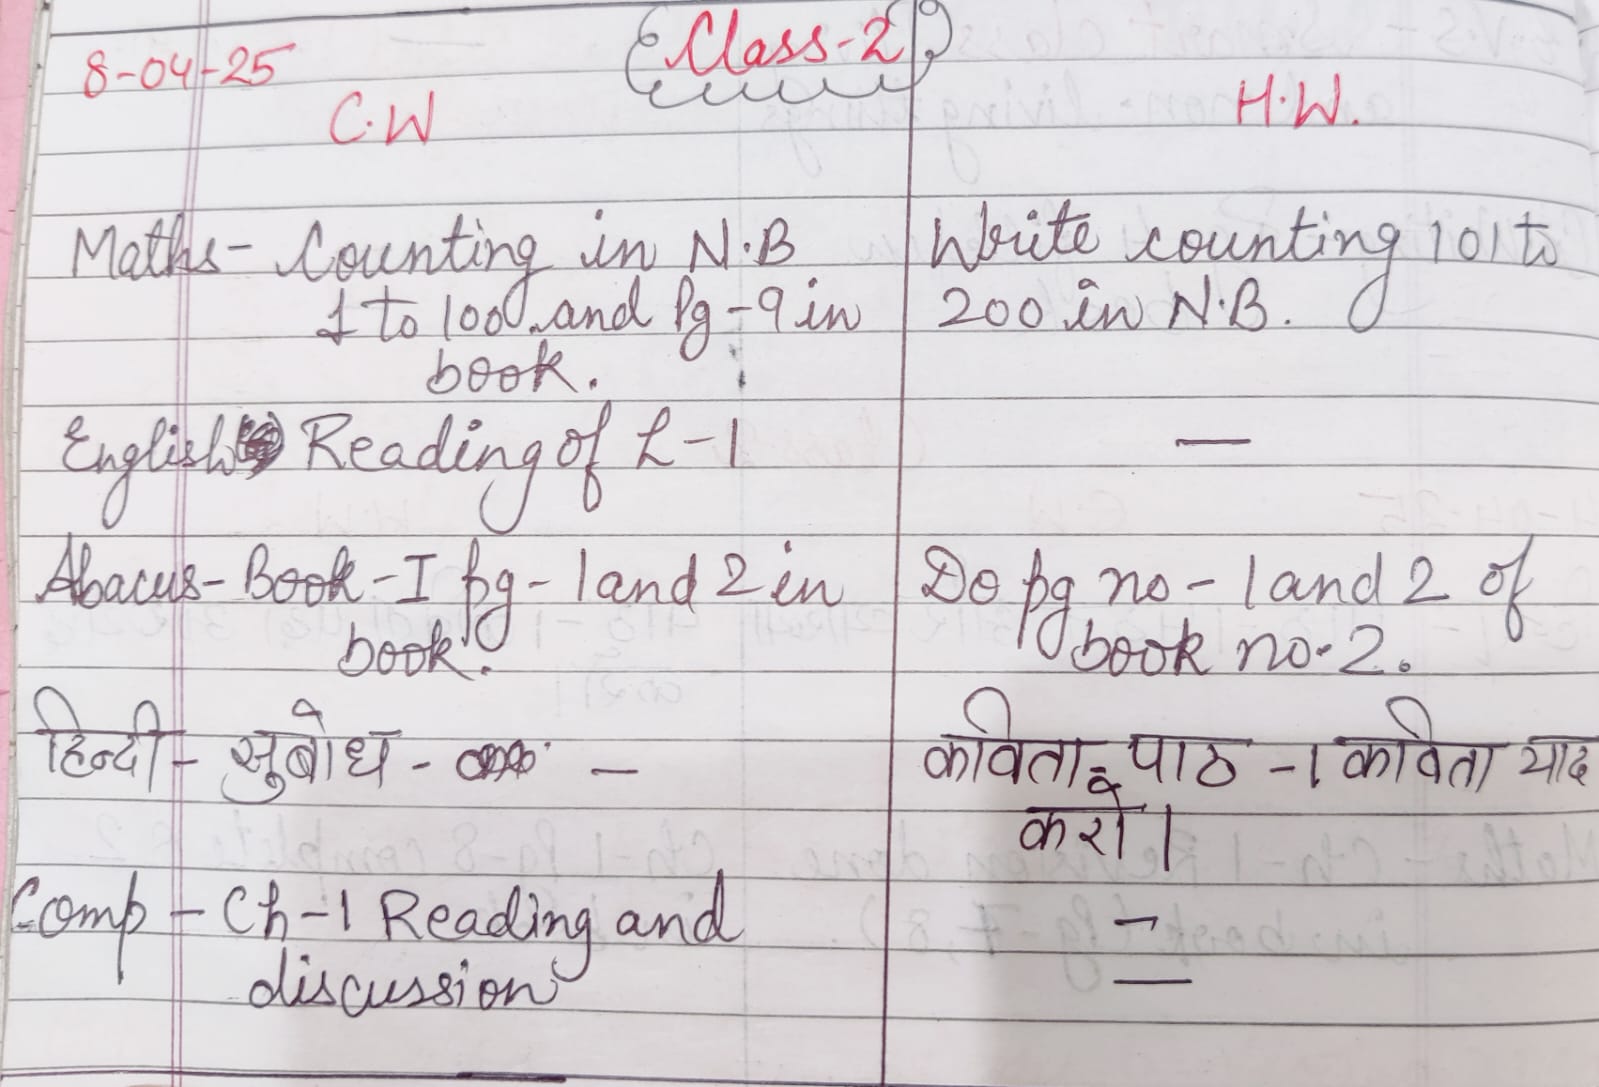 Class-2
8-04-25
C.W H.W.
Maths- Counting in N.B Write counting 101 to
1 to 100 and Pg-9 in 200 in N.B.
book.
English Reading of L-1 —
Abacus- Book-I pg- 1 and 2 in Do pg no- 1 and 2 of
book. book no.2.
हिन्दी - सुबोध - - कविता पाठ -1 कविता याद
करो।
Comp - Ch-1 Reading and -
discussion —